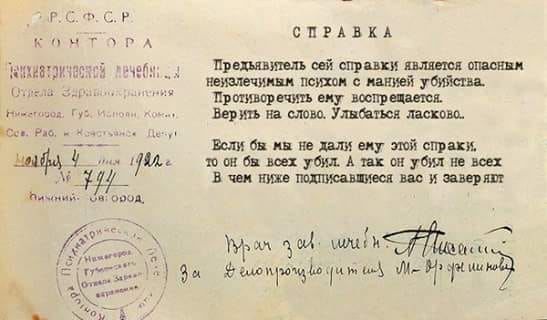 Р.С.Ф.С.Р.
КОНТОРА
Психиатрической лечебницы
Отдела Здравоохранения
Нижегород. Губ. Исполн. Комит.
Сов. Раб. и Крестьянск. Депут.
ноября 4 дня 1922 г.
№ 794
Нижний-Новгород.
СПРАВКА
Предьявитель сей справки является опасным
неизлечимым психом с манией убийства.
Противоречить ему воспрещается.
Верить на слово. Улыбаться ласково.
Если бы мы не дали ему этой спраки,
то он бы всех убил. А так он убил не всех
В чем ниже подписавшиеся вас и заверяют
Врач зав. лечебн.
За Делопроизводителя
Контора Психиатрической Лечебницы
Нижегород.
Губернского
Отдела Здраво-
охранения